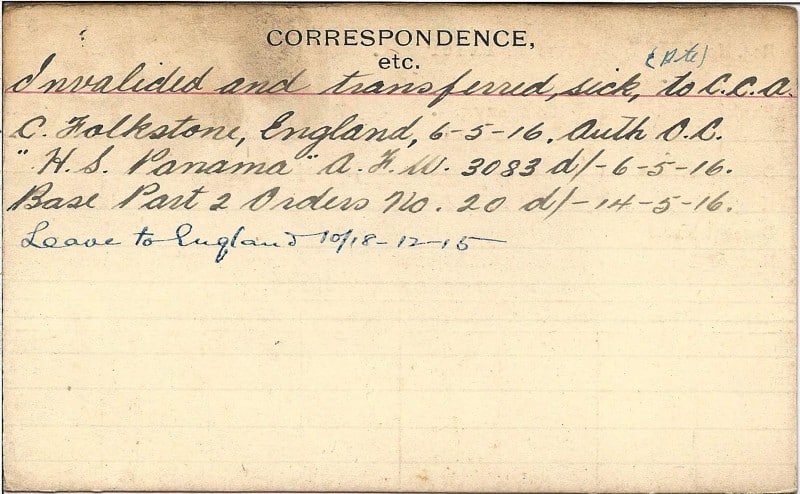 CORRESPONDENCE,
etc.
(Pte)
Invalided and transferred, sick, to C.C.A.
C. Folkstone, England, 6-5-16. Auth O.C.
"H.S. Panama" A.F.W. 3083 d/-6-5-16.
Base Part 2 Orders No. 20 d/-14-5-16.
Leave to England 10/18-12-15